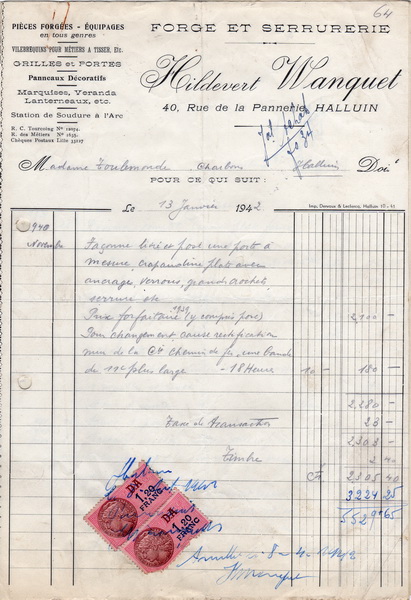 64
PIÈCES FORGÉES - ÉQUIPAGES
en tous genres
VILEBREQUINS POUR MÉTIERS A TISSER, Etc.
GRILLES et PORTES
Panneaux Décoratifs
Marquises, Veranda
Lanterneaux, etc.
Station de Soudure à l'Arc
R. C. Tourcoing Nº 12974.
R. des Métiers Nº 1835.
Chèques Postaux Lille 53127
FORGE ET SERRURERIE
Hildevert Wanquet
40, Rue de la Pannerie, HALLUIN
Madame Toulemonde Charbon Halluin Doit
POUR CE QUI SUIT :
Le 13 Janvier 1942
Imp. Devaux & Leclercq, Halluin
1940
Novembre Façonné livré et posé une porte à
mesure, crapaudine plate avec
ancrage, verrous, grands crochets,
serrure etc
Prix forfaitaire (y compris pose) 2,100 -
Pour changement cause rectification
mur de la Cie Chemin de fer, une bande
de 11c plus large - 18 Heures 10 - 180 -
2,280 -
Taxe de transaction 23 -
2,303 -
Timbre 2 40
2305 40
3224 25
5529 65
DA
1,20
FRANC
DA
1,20
FRANC